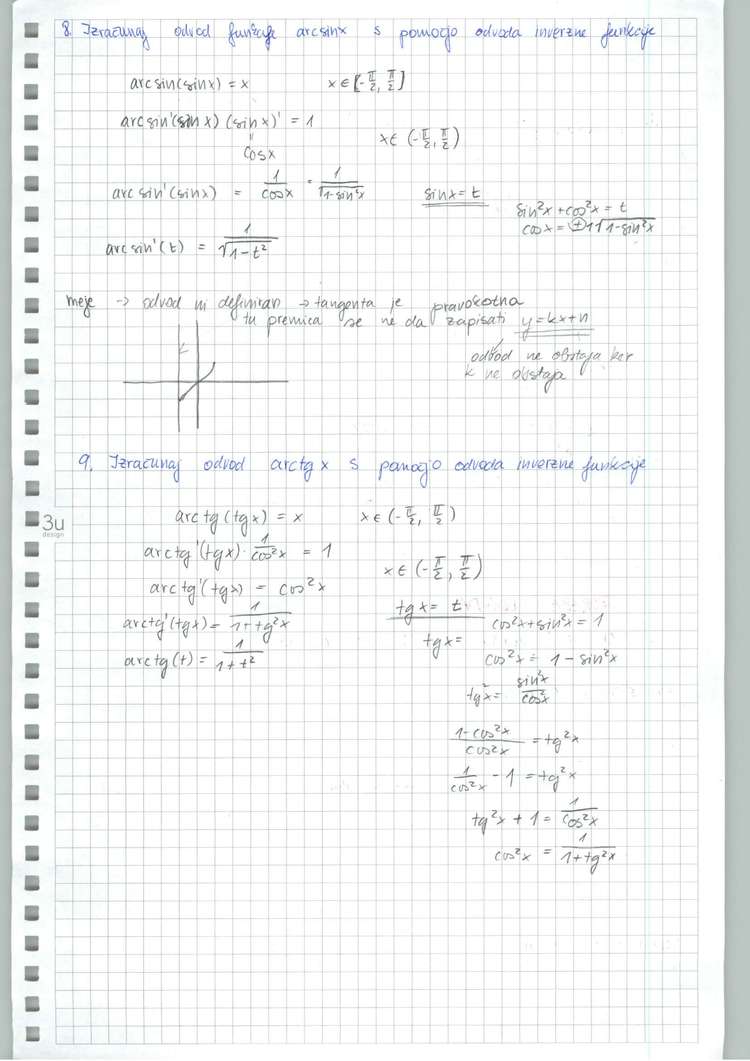 8. Izračunaj odvod funkcije arcsinx s pomočjo odvoda inverzne funkcije
arcsin(sinx) = x x∈[-π/2, π/2]
arcsin'(sinx) (sinx)' = 1
x∈(-π/2, π/2)
"
cosx
arcsin'(sinx) = 1/cosx = 1/√(1-sin²x) sinx = t
sin²x + cos²x = t
cosx = ⊕1√(1-sin²x)
arcsin'(t) = 1/√(1-t²)
meje -> odvod ni definiran -> tangenta je pravokotna
tu premica se ne da zapisati y=kx+n
odvod ne obstaja ker
k ne obstaja
9. Izračunaj odvod arctg x s pomočjo odvoda inverzne funkcije
3u
design
arctg(tgx) = x x∈(-π/2, π/2)
arctg'(tgx)·1/cos²x = 1
x∈(-π/2, π/2)
arctg'(tgx) = cos²x
tgx = t
arctg'(tgx) = 1/(1+tg²x)
cos²x+sin²x = 1
tgx =
arctg(t) = 1/(1+t²)
cos²x = 1-sin²x
tg²x = sin²x/cos²x
(1-cos²x)/cos²x = tg²x
1/cos²x - 1 = tg²x
tg²x + 1 = 1/cos²x
cos²x = 1/(1+tg²x)